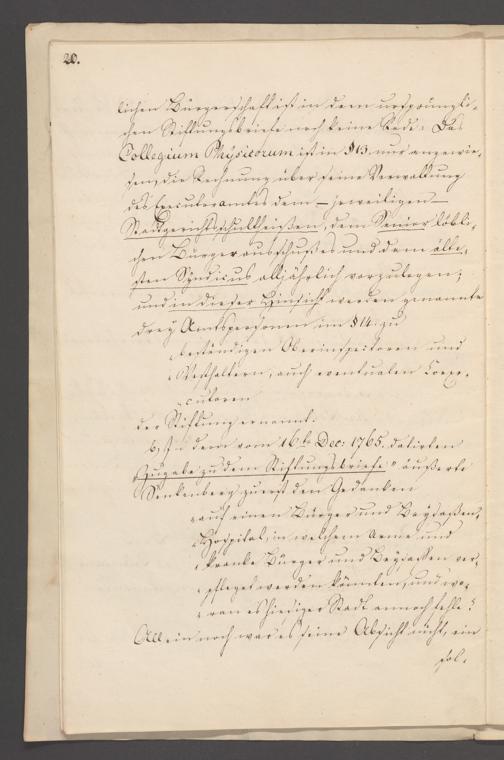 20.
lichen Bürgerschaft ist in dem ursprüngli-
chen Stiftungsbriefe noch keine Rede: Das
Collegium Physicorum ist in §13. nur angewie-
sen, die Rechnung über seine Verwaltung
des Executoramtes dem – jeweiligen –
Stadtgerichtsschultheißen, dem Senior löbli-
chen Bürgerausschußes und dem älte-
sten Syndicus alljährlich vorzulegen;
und in dieser Hinsicht werden genannte
drey Amtspersonen im §14: zu
„beständigen Oberinspectoren und
„Vesthaltern, auch eventualen Coexe-
„cutoren
der Stiftung ernannt.
b, In dem vom 16t Dec: 1765. datirten
Zugabe zu dem Stiftungsbriefe: äußerte
Senkenberg zuerst den Gedanken
„auf einen Bürger und Beysaßen-
„Hospital, in welchem Arme und
„kranke Bürger und Beysassen ver-
„pfleget werden könnten, und wo-
„ran es hiesiger Stadt annoch fehle:
Allein noch war es seine Absicht nicht, ein
sol-